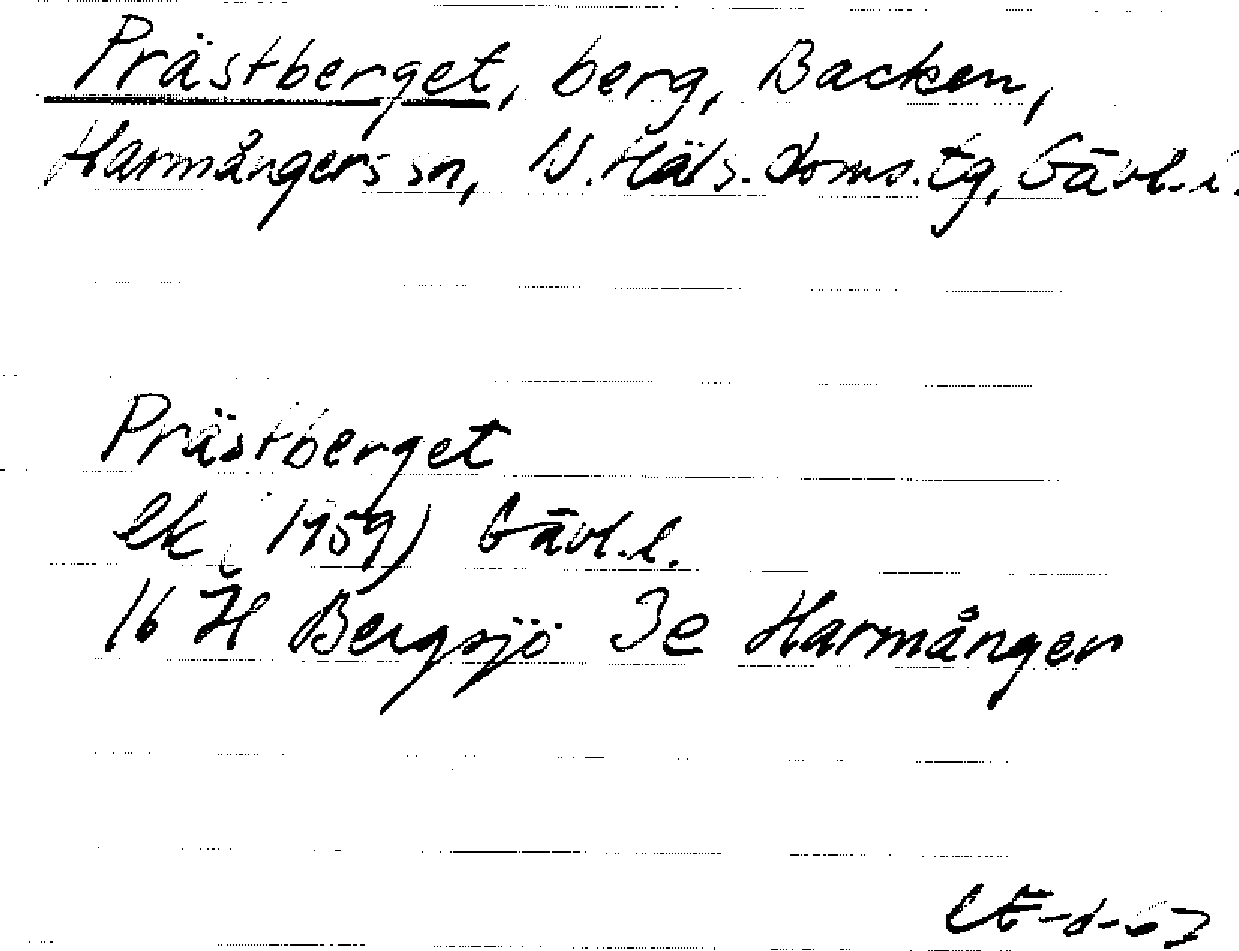 Prästberget, berg, Backen,
Harmångers sn, N. Häls. doms. tg, Gävl. l.
Prästberget
ek (1959) Gävl. l.
16 H Bergsjö 3e Harmånger